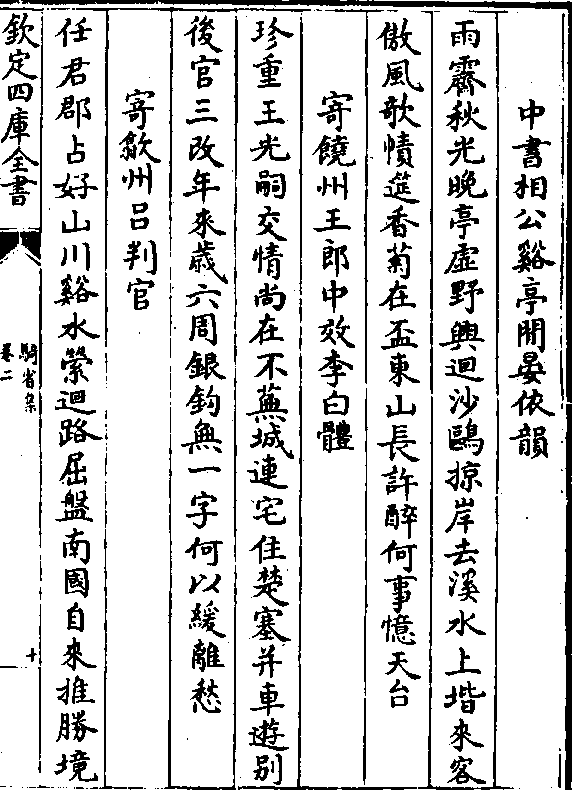 中書相公谿亭閒晏依韻
雨霽秋光晚亭虛野興迴沙鷗掠岸去溪水上堦來客
傲風欹幘筵香菊在盃東山長許醉何事憶天台
寄饒州王郎中效李白體
珍重王光嗣交情尚在不蕪城連宅住楚塞并車遊别
後官三改年來歳六周銀鉤無一字何以緩離愁
寄歙州吕判官
任君郡占好山川谿水縈迴路屈盤南國自來推勝境
欽定四庫全書
騎省集
卷二
十